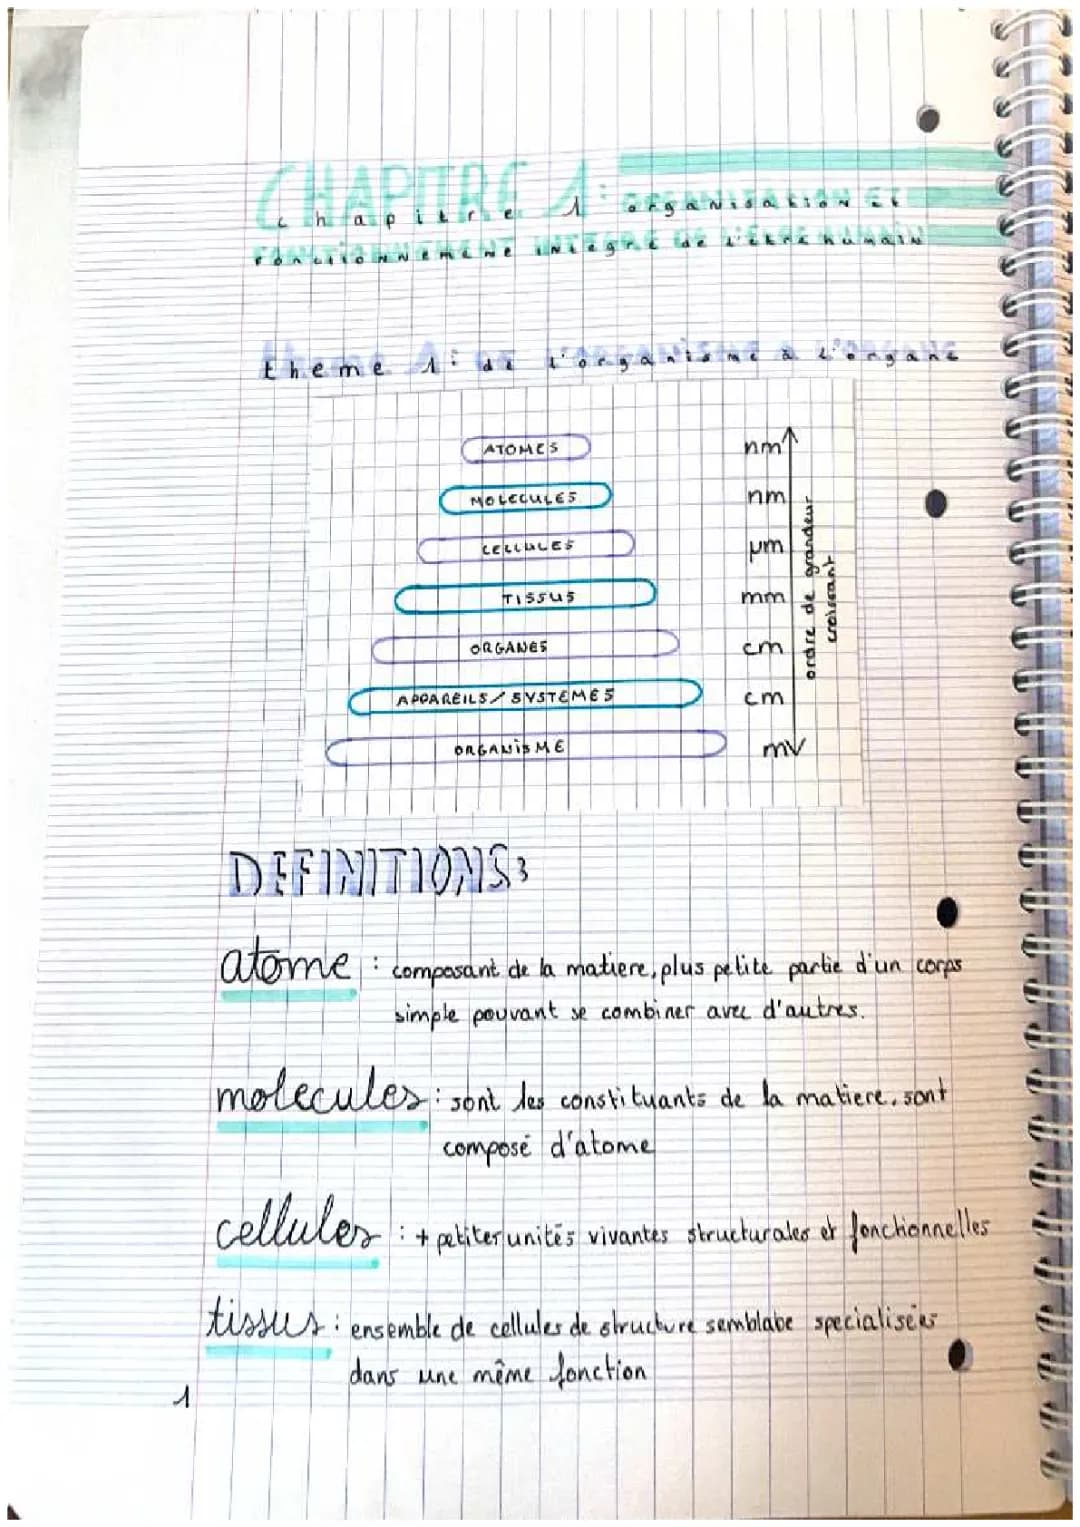 CHAPITRE 1: ORGANISATION ET
FONCTIONNEMENT INTEGRE DE L'ETRE HUMAIN
theme 1: de L'ORGANISME à L'ORGANE
ATOMES nm
MOLECULES nm
CELLULES µm
TISSUS mm
ORGANES cm
APPAREILS/SYSTEMES cm
ORGANISME m
ordre de grandeur
croissant
DEFINITIONS:
atome : composant de la matiere, plus petite partie d'un corps
simple pouvant se combiner avec d'autres.
molecules : sont les constituants de la matiere, sont
composé d'atome
cellules : + petites unités vivantes structurales et fonctionnelles
tissus : ensemble de cellules de structure semblabe specialisées
dans une même fonction
1